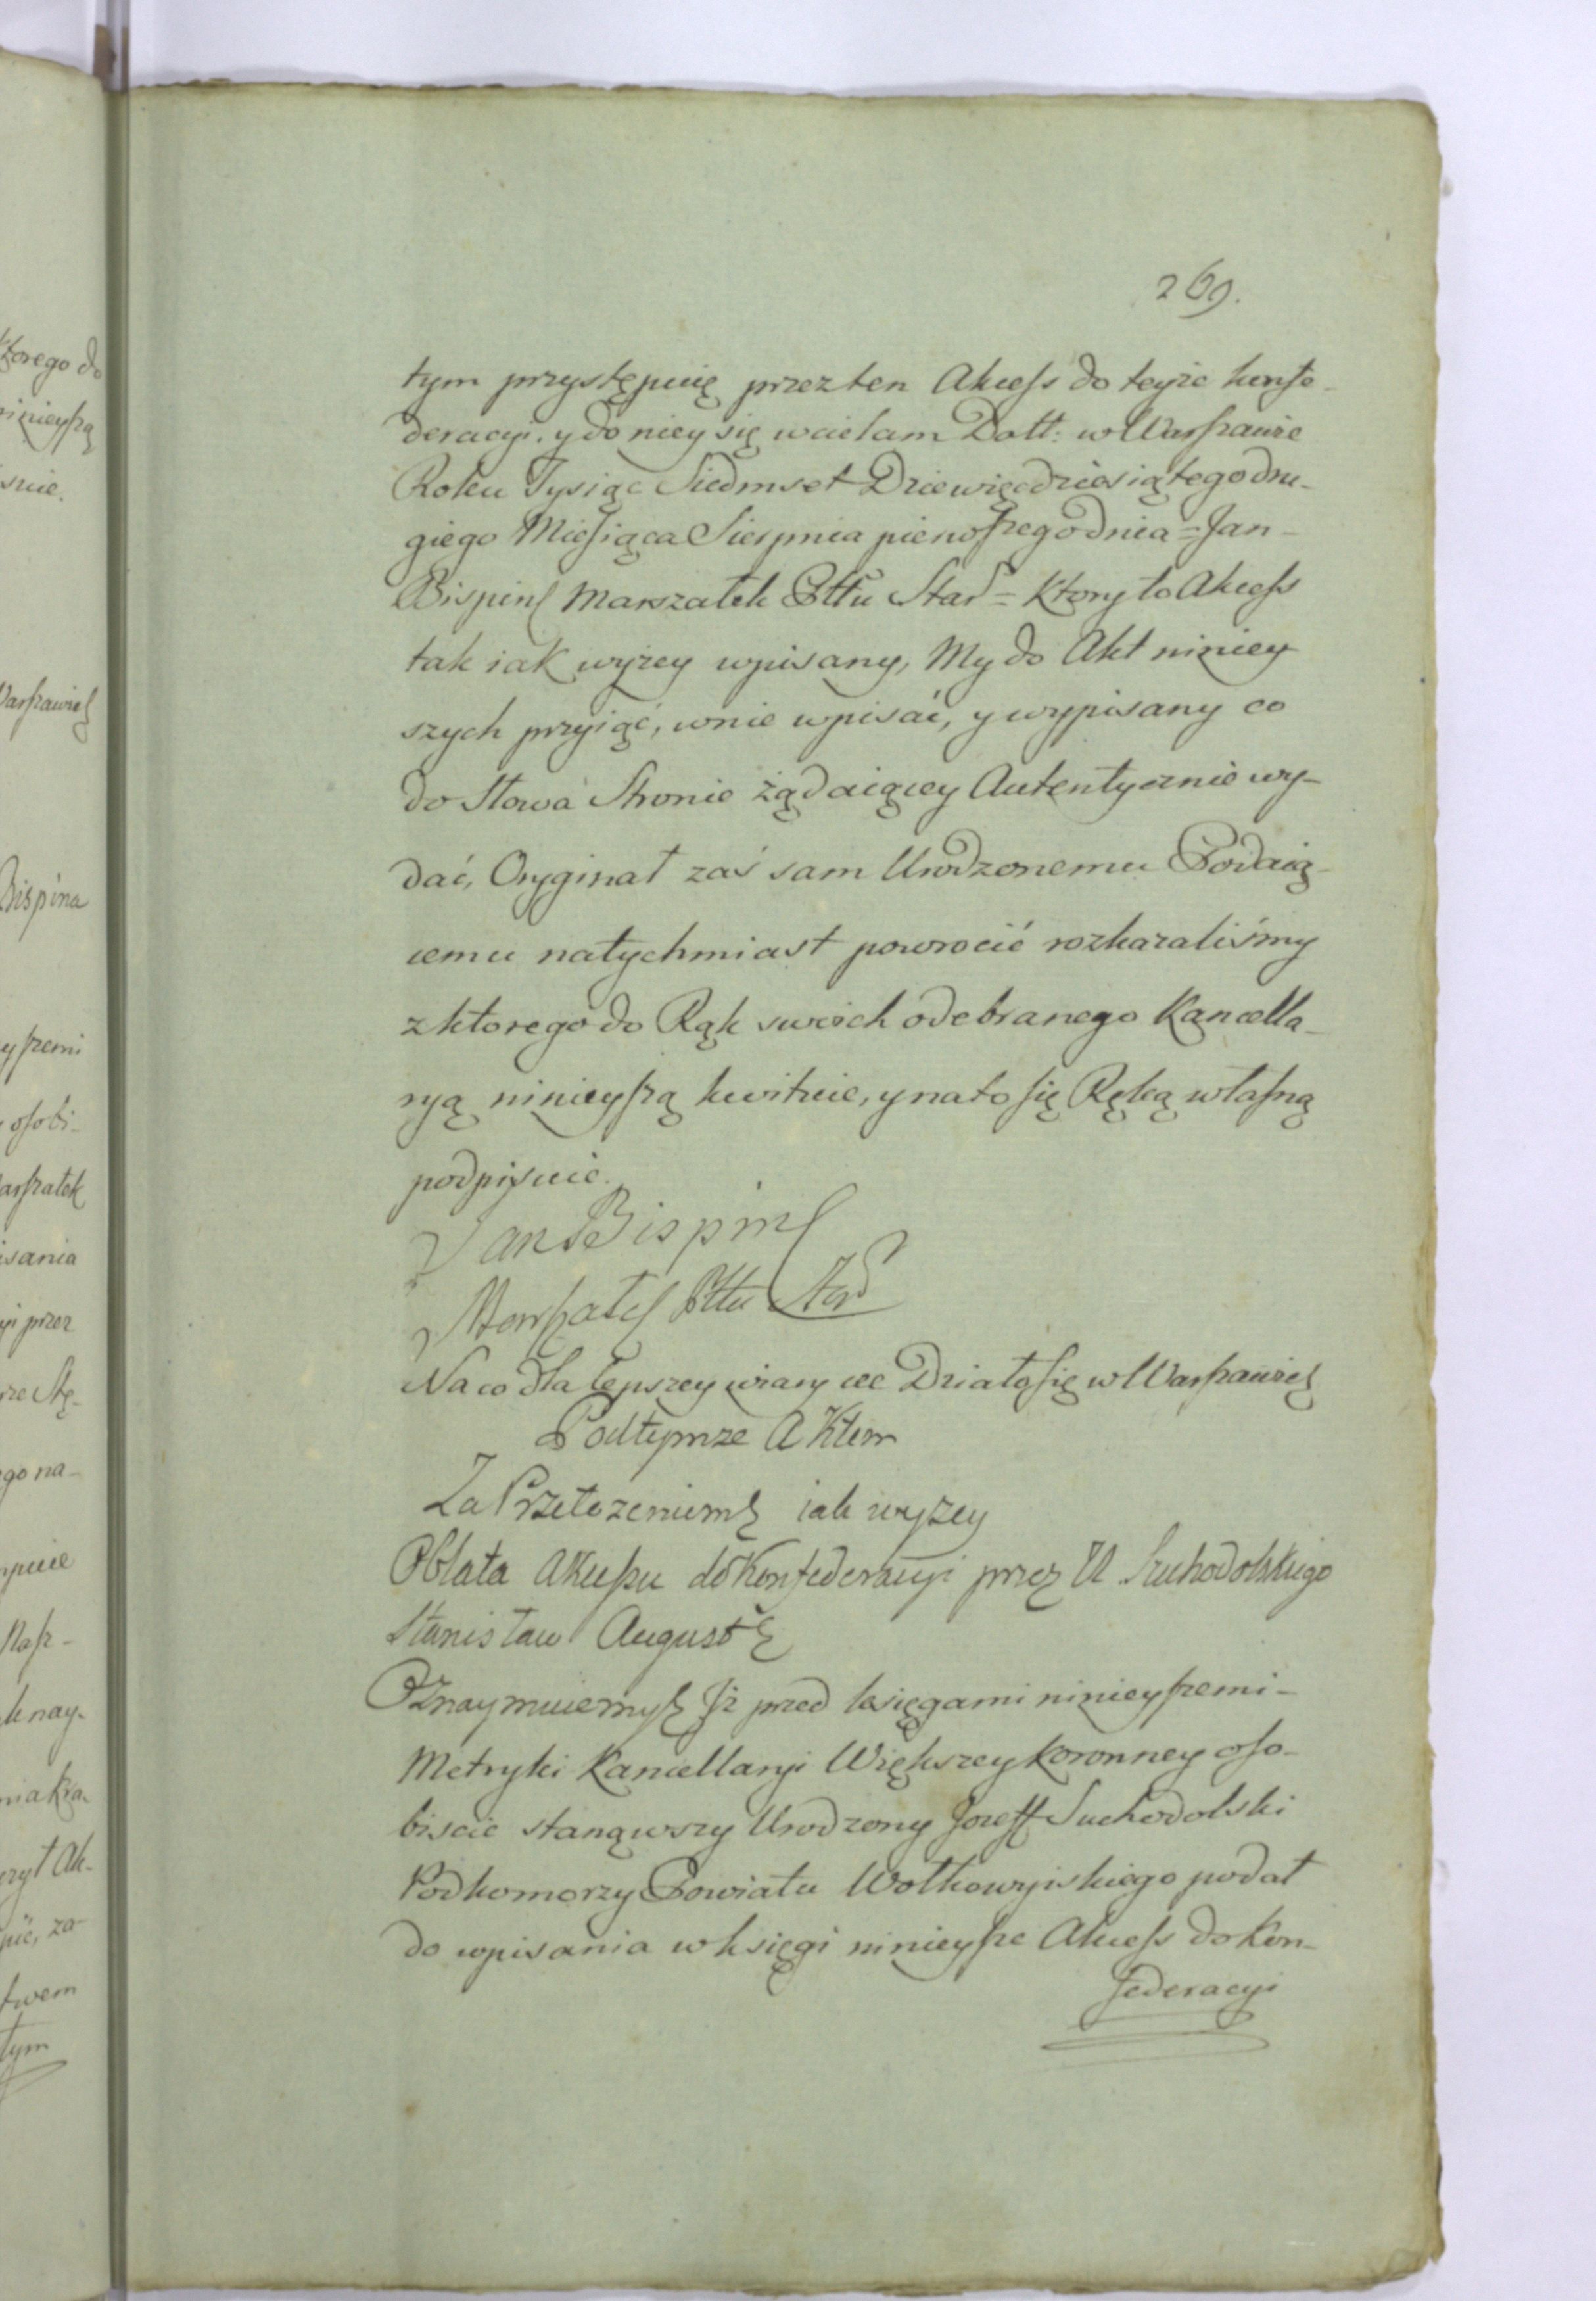 269.
tym przystępuię przez ten Akcess do teyże konfe-
deracyi. y do niey się wcielam Datt: w Warszawie
Roku Tysiąc Siedmset Dziewięćdziesiątego dru-
giego Miesiąca Sierpnia pierwszego dnia = Jan -
Bisping Marszałek Pttu Star = Ktory to Akcess
tak iak wyżey wpisany, My do Akt niniey
szych przyiąć, w nie wpisać, y wypisany co
do słowa Stronie żądaiącey Autentycznie wy-
dać, Oryginał zaś sam Urodzonemu Podaią-
cemu natychmiast powrocić rozkazaliśmy
z ktorego do Rąk swoich odebranego Kancella-
ryą ninieyszą kwituie, y na to się Ręką własną
podpisuie.
Jan Bisping
Marszałek Pttu Star
Na co dla lepszey wiary etc Działo się w Warszawie
Pod tymże Aktem
Za Przełożeniem iak wyżey
Oblata Akcessu do Konfederacyi przez U Suchodolskiego
Stanisław August
Oznaymuiemy Jż przed księgami ninieyszemi -
Metryki Kancellaryi Większey Koronney oso-
biscie stanąwszy Urodzony Jozeff Suchodolski
Podkomorzy Powiatu Wołkowyiskiego podał
do wpisania w księgi ninieysze Akcess do Kon-
federacyi
ktorego do
ninieyszą
Warszawie
Bispina
yszemi
osobi-
arszałek
isania
yi przez
ego na-
k nay-
Ak-
pić, za-
twem
tym